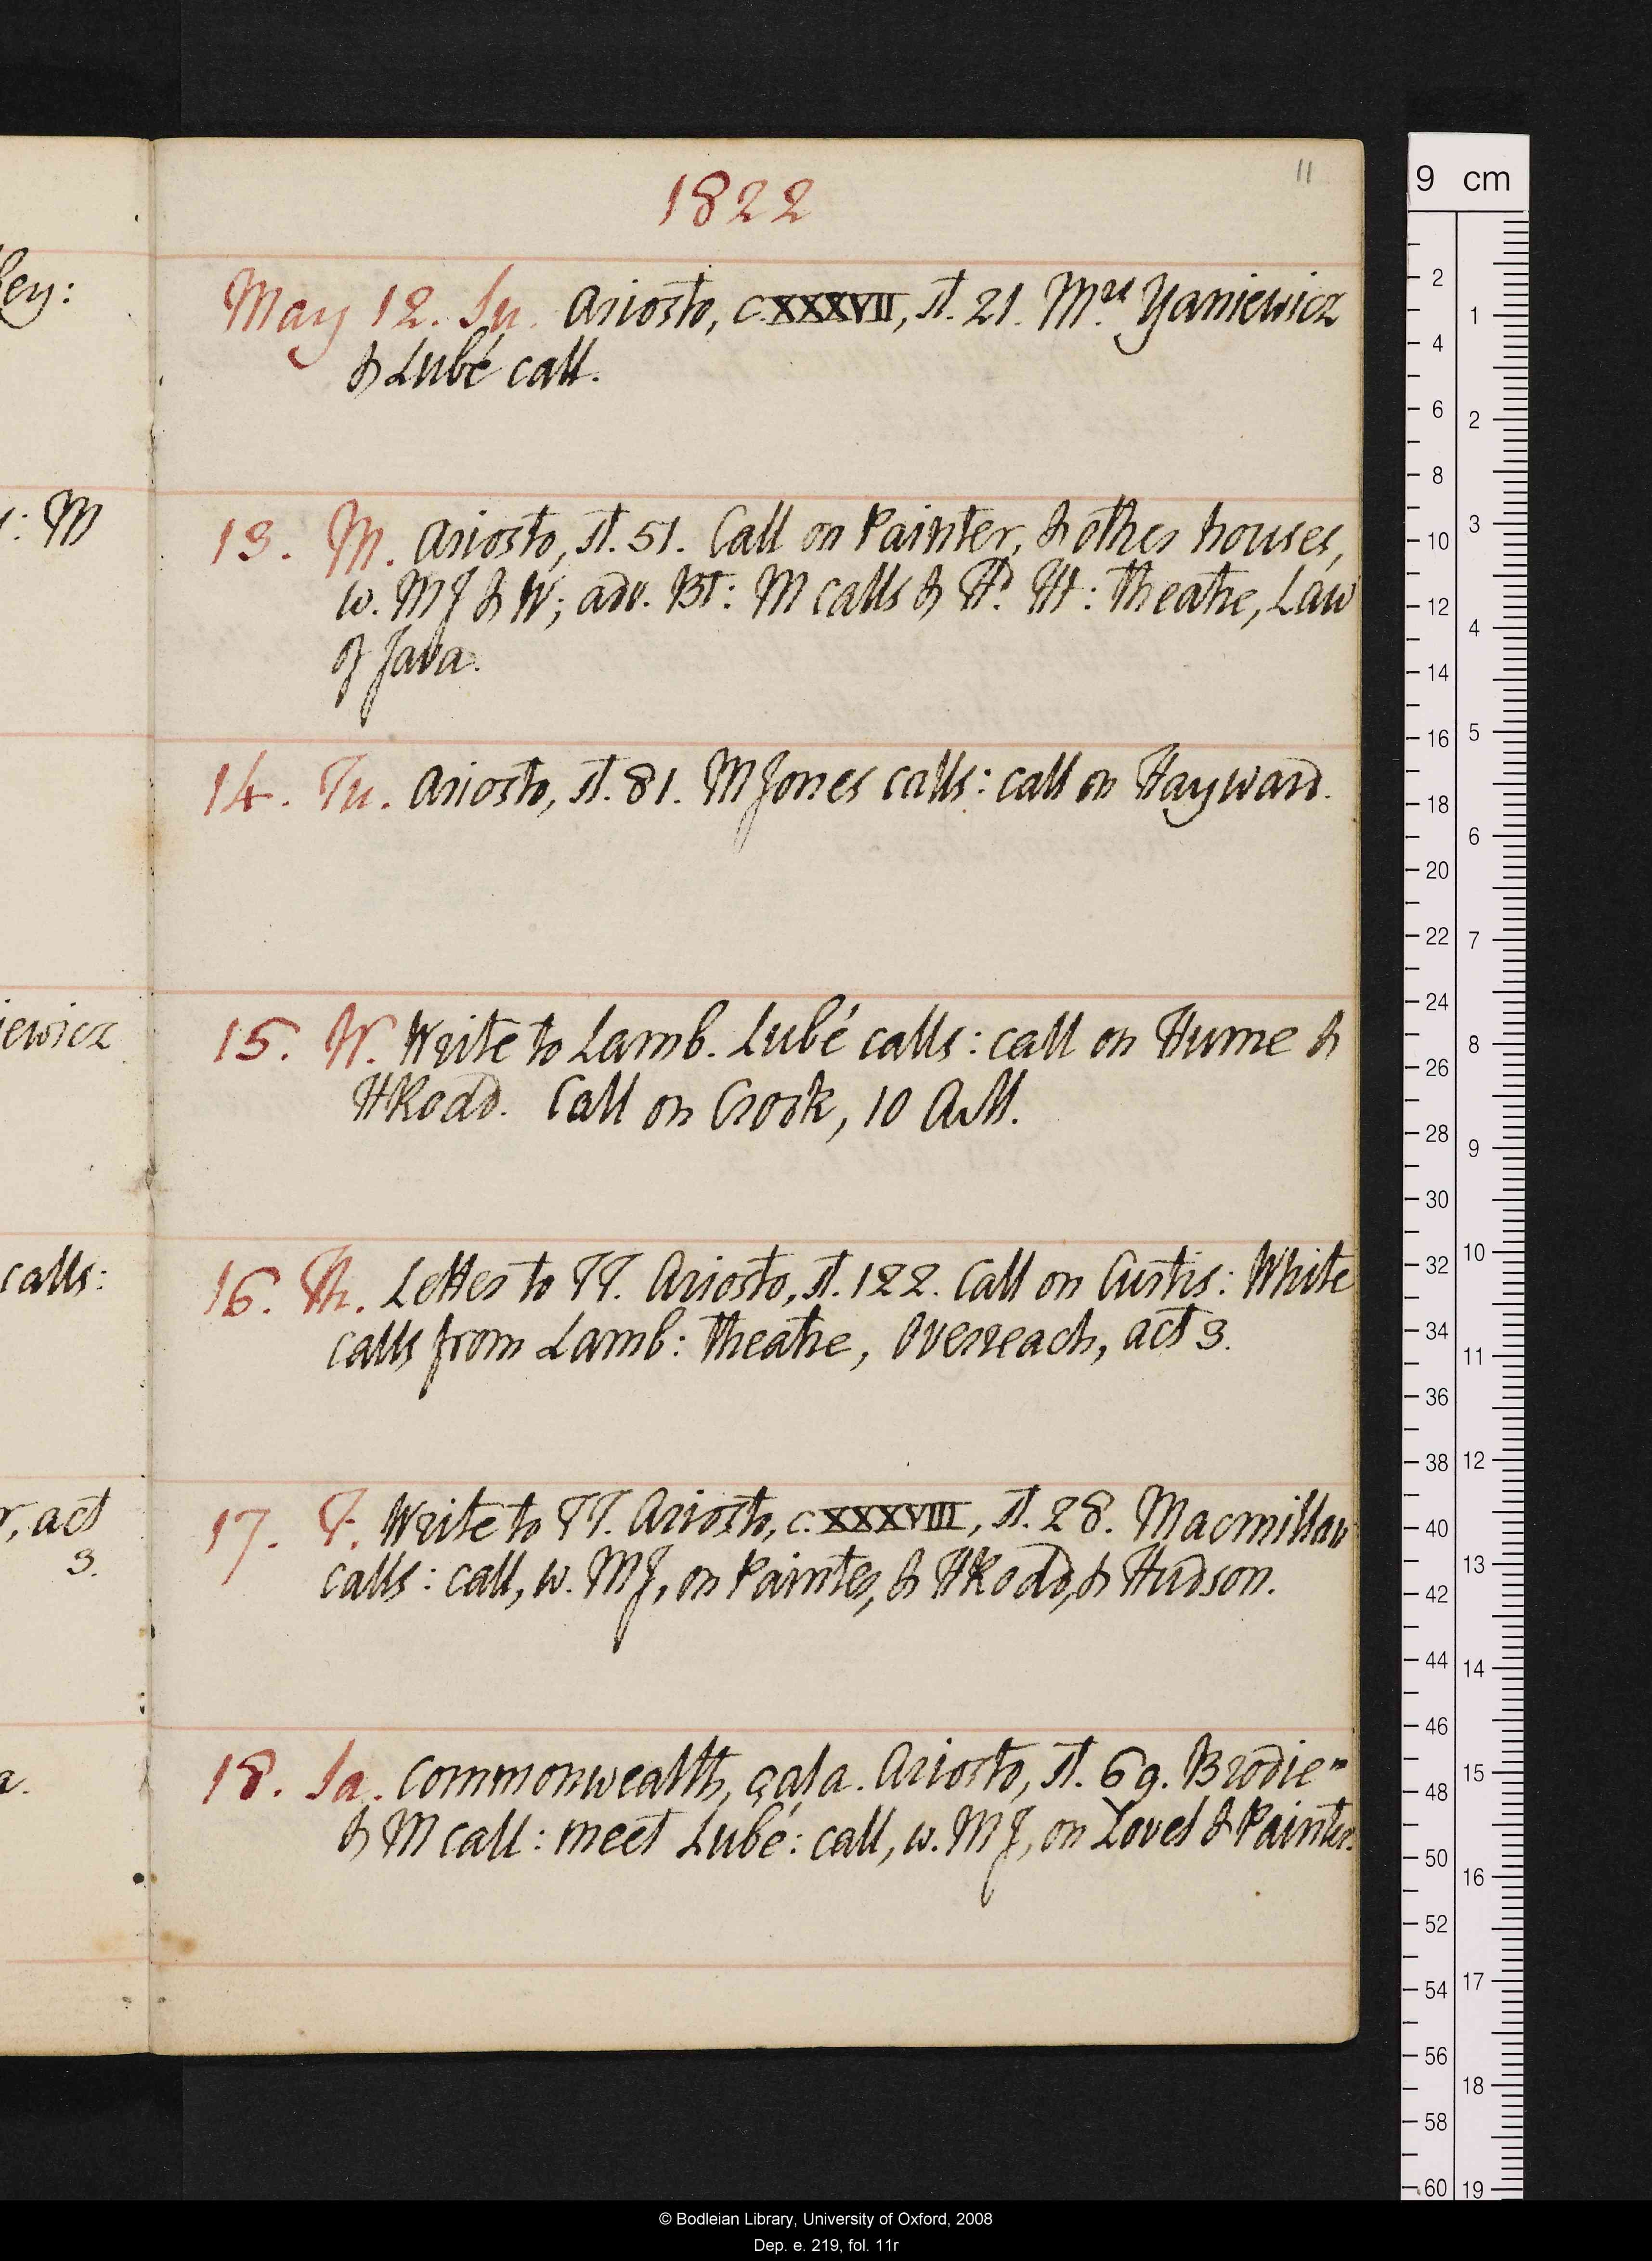 11
1822
May 12. Su. Ariosto, c. XXXVII, st. 21. Mrs Yaniewicz
& Lubé call.
13. M. Ariosto, st. 51. Call on Painter, & other houses,
w. MJ & W; adv. BT: M calls & Hd. H: theatre, Law
of Java.
14. Tu. Ariosto, st. 81. M Jones calls: call on Hayward.
15. W. Write to Lamb. Lubé calls: call on Hume &
HRodd. Call on Crook, 10 AM.
16. Th. Letter to TT. Ariosto, st. 122. Call on Curtis: White
calls from Lamb: theatre, Overreach, act 3.
17. F. Write to TT. Ariosto, c. XXXVIII, st. 28. Macmillan
calls: call, w. MJ, on Painter, & HRodd, & Hudson.
18. Sa. Commonwealth, çala. Ariosto, st. 69. Brodie
& M call: meet Lubé: call, w. MJ, on Lovel & Painter.
ey:
: M
iewicz
calls:
r, act
3.
a.
9 cm
2
4
6
8
10
12
14
16
18
20
22
24
26
28
30
32
34
36
38
40
42
44
46
48
50
52
54
56
58
60
1
2
3
4
5
6
7
8
9
10
11
12
13
14
15
16
17
18
19
© Bodleian Library, University of Oxford, 2008
Dep. e. 219, fol. 11r